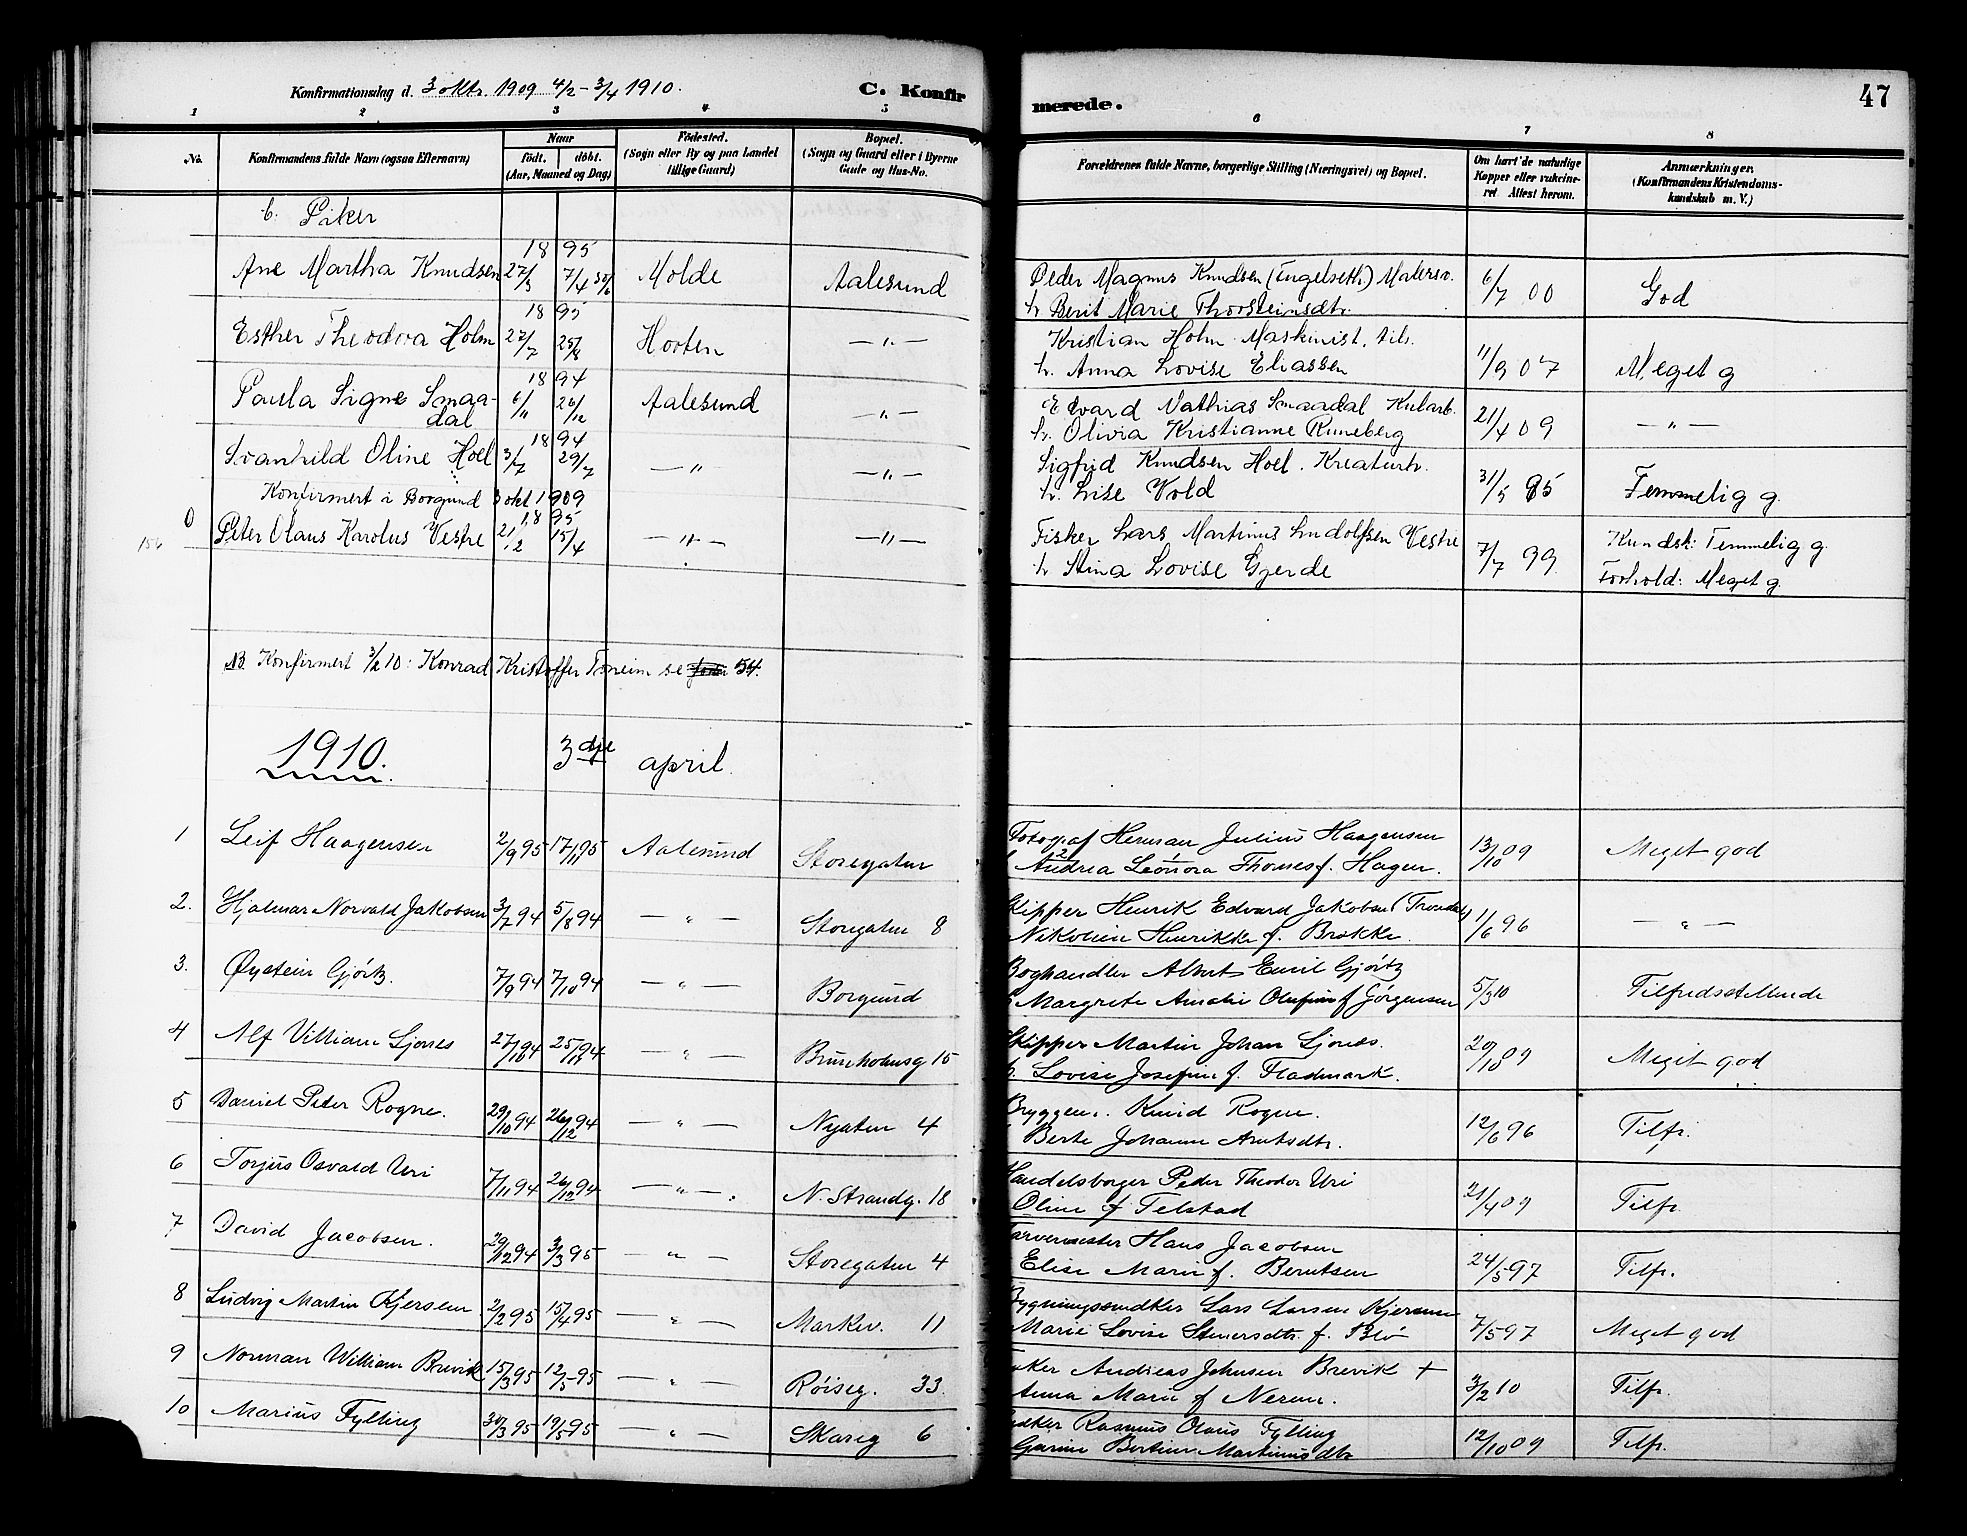 Konfirmationsdag d. 3 oktr. 1909 4/2 - 3/4 1910.
C. Konfirmerede.
47
1 2 3 4 5 6 7 8
No.
Konfirmandens fulde Navn (ogsaa Efternavn)
Naar
födt. döbt.
(Aar, Maaned og Dag)
Födested.
(Sogn eller By og paa Landet
tillige Gaard)
Bopæl.
(Sogn og Gaard eller i Byerne
Gade og Hus-No.
Forældrenes fulde Navne, borgerlige Stilling (Næringsvei) og Bopæl.
Om havt de naturlige
Kopper eller vakcine-
ret Attest herom.
Anmærkninger.
(Konfirmandens Kristendoms-
kundskab m. V.)
b. Piker
18 95
Ane Martha Knudsen 27/3 7/4 Molde Aalesund Peder Magnus Knudsen (Engelseth) Malersv. 6/7 00 God
h. Berit Marie Thorsteinsdtr.
18 95
Esther Theodora Holm 27/7 25/8 Horten — " — Kristian Holm Maskinist, 11/9 07 Meget g
h. Anna Lovise Eliassen
18 94
Paula Signe Smaadal 6/11 26/12 Aalesund — " — Edvard Mathias Smaadal Kularb. 21/4 09 — " —
h. Olivia Kristianne Runeberg
18 94
Svanhild Oline Hoel 3/7 29/7 — " — — " — Sigfrid Knudsen Hoel. Kreaturh. 31/5 95 Temmelig g.
h. Lise Vold
Konfirmert i Borgund 3 okt 1909
18 95
0 156 Peter Olaus Karolus Vestre 21/2 15/4 — " — — " — Fisker Lars Martinus Ludolfsen Vestre 7/7 99 Kundsk: Temmelig g.
h. Stina Lovise Gjerde Forhold: Meget g.
NB. Konfirmert 3/2 10: Konrad Kristoffer Tomeim se 54.
1910. 3dje april.
1 Leif Haagensen 2/9 95 17/11 95 Aalesund Storegaten Fotograf Herman Julius Haagensen 13/10 09 Meget god
Andrea Leonora Thomesf. Hagen.
2. Hjalmar Norvald Jakobsen 3/7 94 5/8 94 — " — Storegaten 8 Skipper Henrik Edvard Jakobsen (Trondal) 1/6 96 — " —
Nikoline Henrikke f. Brokke.
3. Øystein Gjörtz. 7/9 94 7/10 94 — " — Borgund Boghandler Albert Emil Gjörtz 5/3 10 Tilfredsstillende
Margrete Amalie Olufine f Jörgensen
4 Alf Villiam Sjones 27/10 94 25/12 94 — " — Bruneholmsg 15 Skipper Martin Johan Sjones. 29/10 09 Meget god
h. Lovise Josefine f. Fladmark.
5 Daniel Peter Rogne. 29/10 94 26/12 94 — " — Nygaten 4 Bryggen. Knud Rogne. 12/6 96 Tilfr.
Berte Johanne Amtsdtr.
6 Torjus Osvald Uri 7/11 94 26/12 94 — " — N. Strandg. 18 Handelsborger Peder Theodor Uri 21/4 09 Tilfr.
Oline f Telstad
7 David Jacobsen. 29/12 94 3/3 95 — " — Storegaten 4 Farvemester Hans Jacobsen 24/5 97 Tilfr.
Elise Marie f. Berntsen
8 Ludvig Martin Kjersem 2/2 95 15/4 95 — " — Markev. 11 Bygningssndker Lars Larsen Kjersem 7/5 97 Meget god
Marie Lovise Steversdtr. f. Blö
9 Norman William Brevik 15/3 95 12/5 95 — " — Röiseg. 33. Andreas Johnsen Brevik + 3/2 10 Tilfr.
Anna Marie f Nerem.
10 Marius Fylling 30/3 95 19/5 95 — " — Skareg 6 Rasmus Olaus Fylling 12/10 09 Tilfr.
Gurine Bertine Martinusdtr